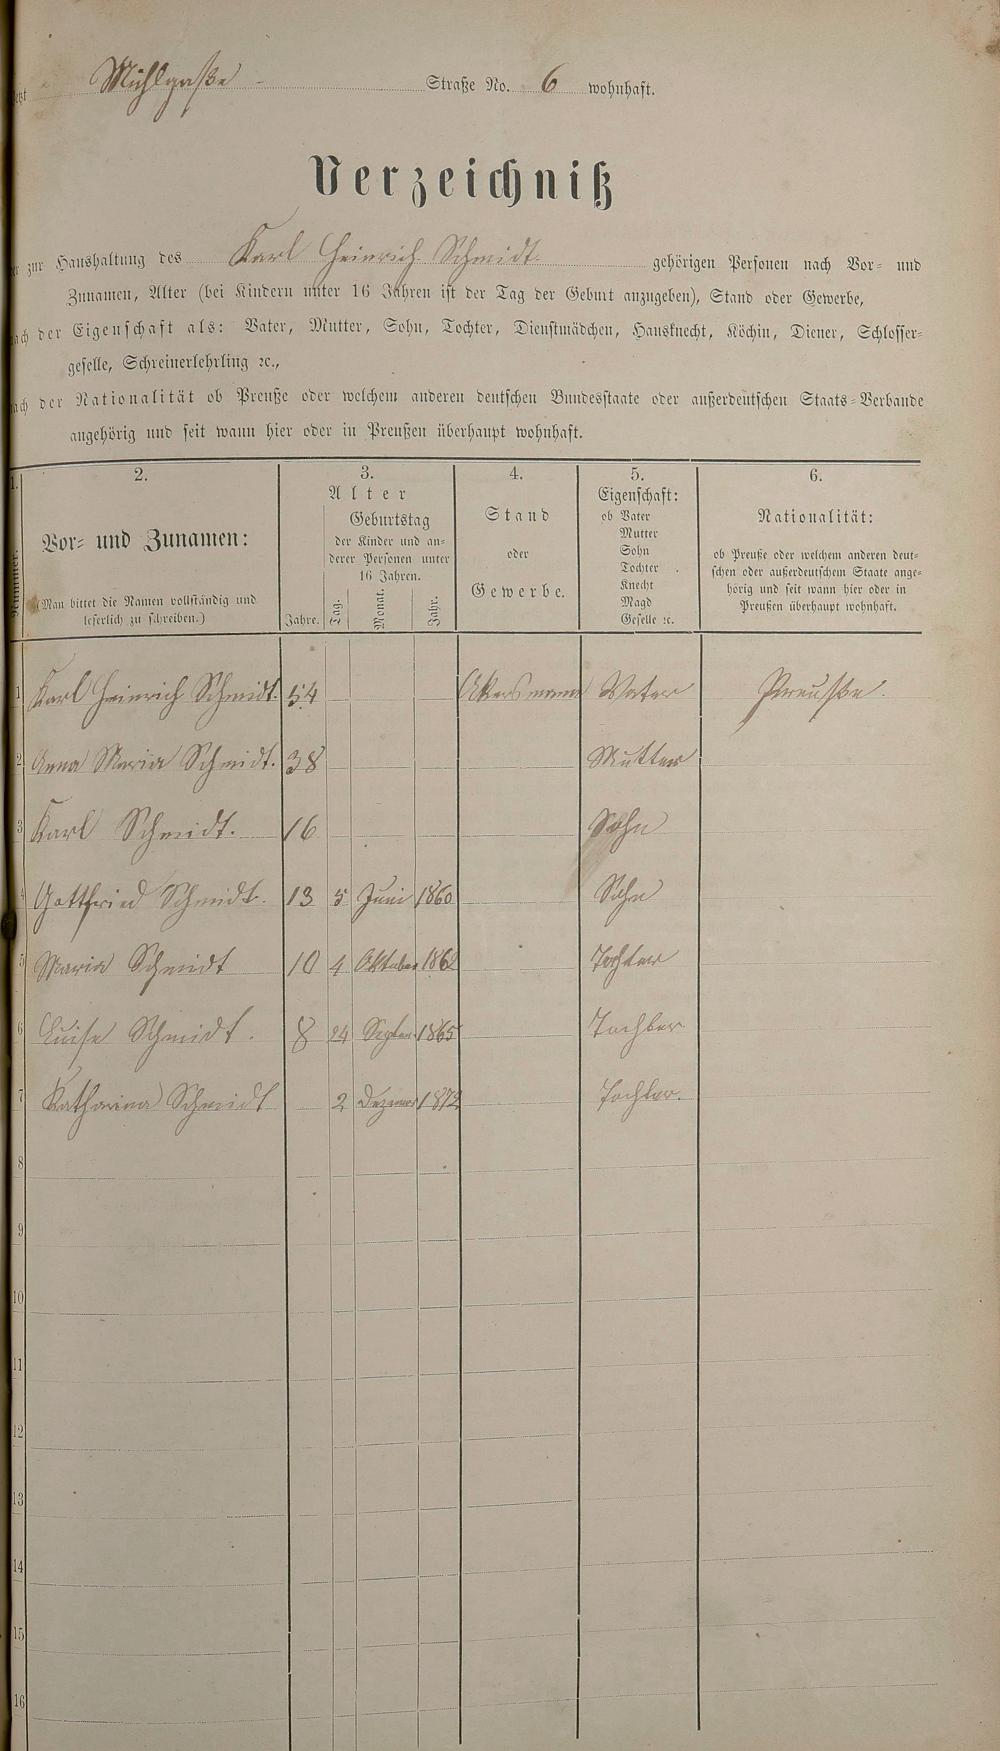 jetzt Mühlgaße Straße No. 6 wohnhaft.
Verzeichniß
der zur Haushaltung des Karl Heinrich Schmidt. gehörigen Personen nach Vor- und
Zunamen, Alter (bei Kindern unter 16 Jahren ist der Tag der Geburt anzugeben), Stand oder Gewerbe,
nach der Eigenschaft als: Vater, Mutter, Sohn, Tochter, Dienstmädchen, Hausknecht, Köchin, Diener, Schlosser-
geselle, Schreinerlehrling ꝛc.,
nach der Nationalität ob Preuße oder welchem anderen deutschen Bundesstaate oder außerdeutschen Staats-Verbande
angehörig und seit wann hier oder in Preußen überhaupt wohnhaft.
1.
Nummer.
2.
Vor- und Zunamen:
(Man bittet die Namen vollständig und
leserlich zu schreiben.)
3.
Alter
Geburtstag
der Kinder und an-
derer Personen unter
16 Jahren.
Jahre. Tag. Monat. Jahr.
4.
Stand
oder
Gewerbe.
5.
Eigenschaft:
ob Vater
Mutter
Sohn
Tochter
Knecht
Magd
Geselle ꝛc.
6.
Nationalität:
ob Preuße oder welchem anderen deut-
schen oder außerdeutschem Staate ange-
hörig und seit wann hier oder in
Preußen überhaupt wohnhaft.
1 Karl Heinrich Schmidt. 54 Akersmann Vater Preuße.
2 Anna Maria Schmidt. 38 Mutter
3 Karl Schmidt. 16 Sohn
4 Gottfried Schmidt. 13 5 Juni 1860 Sohn
5 Maria Schmidt 10 4 Oktober 1862 Tochter
6 Luise Schmidt. 8 24 Septem. 1865 Tochter
7 Katharina Schmidt 2 1872 Tochter.
8
9
10
11
12
13
14
15
16